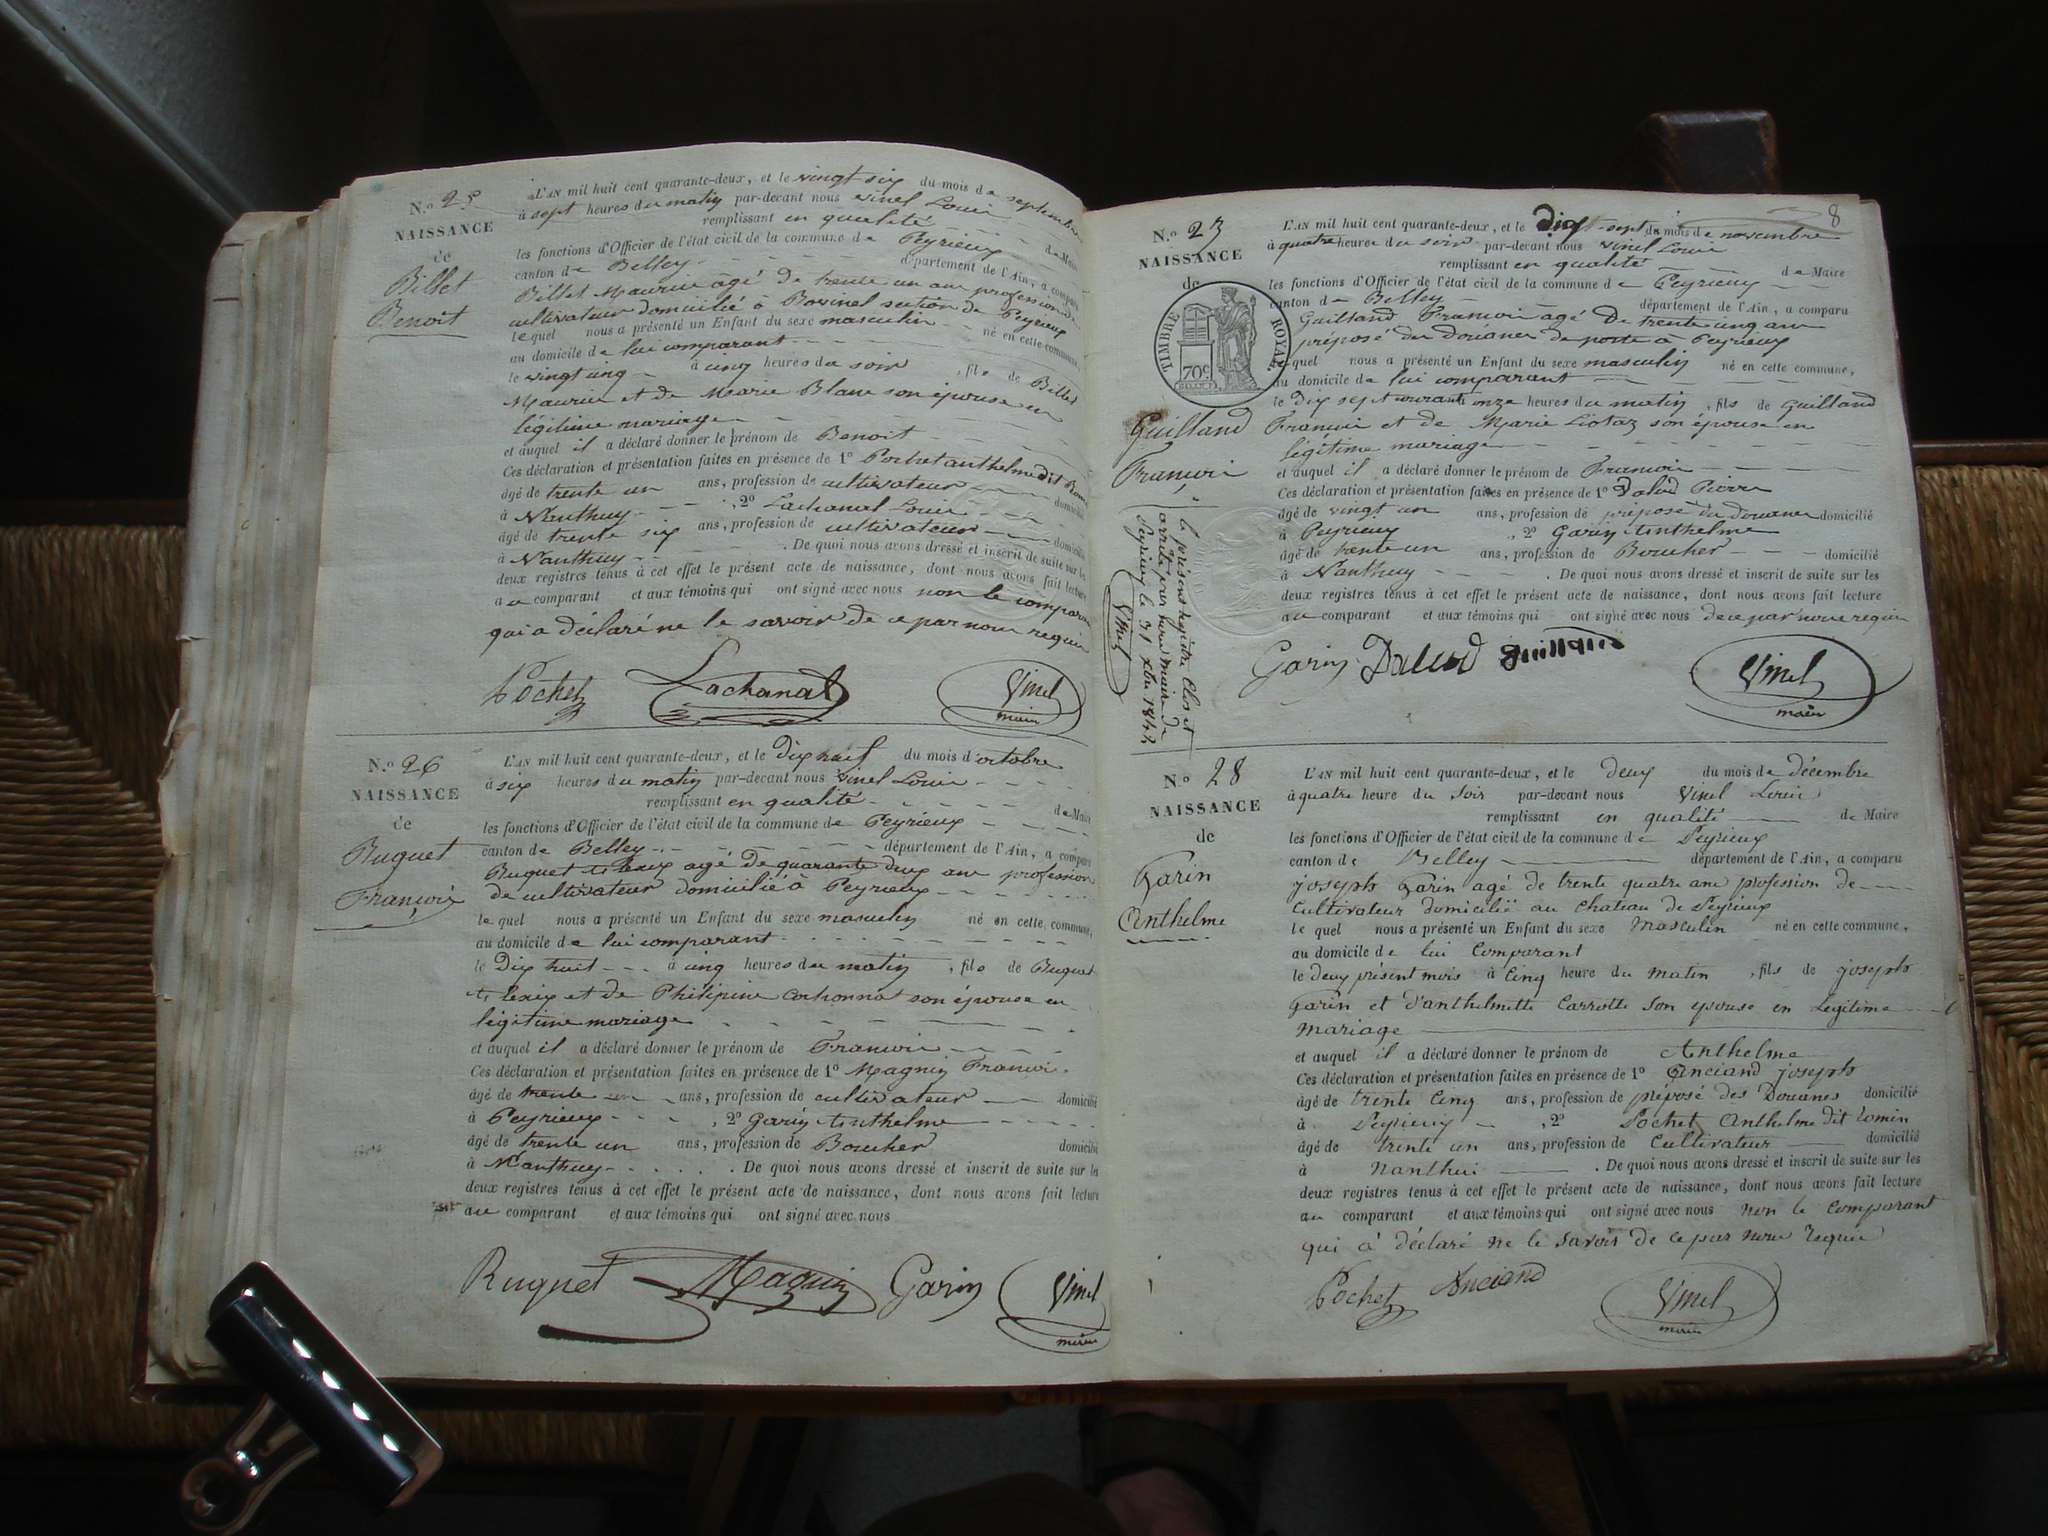 N.º 25
NAISSANCE
de
Billet
Benoit
L'AN mil huit cent quarante-deux, et le vingt six du mois de septembre
à sept heures du matin par-devant nous Vinel Louis
remplissant en qualité de Maire
les fonctions d'Officier de l'état civil de la commune de Peyrieux
canton de Belley département de l'Ain, a comparu
Billet Maurice agé de trente un ans profession de
cultivateur domicilié à Bovinel section de Peyrieux
lequel nous a présenté un Enfant du sexe masculin né en cette commune,
au domicile de lui comparant
le vingt cinq à cinq heures du soir, fils de Billet
Maurice et de Marie Blanc son épouse en
légitime mariage
et auquel il a déclaré donner le prénom de Benoit
Ces déclaration et présentation faites en présence de 1º Pochet anthelme dit
âgé de trente un ans, profession de cultivateur domicilié
à Nanthuy, 2º Lachanal Louis
âgé de trente six ans, profession de cultivateur domicilié
à Nanthuy. De quoi nous avons dressé et inscrit de suite sur les
deux registres tenus à cet effet le présent acte de naissance, dont nous avons fait lecture
au comparant et aux témoins qui ont signé avec nous non le comparant
qui a déclaré ne le savoir de ce par nous requis
Pochet Lachanal Vinel
maire
N.º 26
NAISSANCE
de
Buguet
François
L'AN mil huit cent quarante-deux, et le dix huit du mois d'octobre
à six heures du matin par-devant nous Vinel Louis
remplissant en qualité de Maire
les fonctions d'Officier de l'état civil de la commune de Peyrieux
canton de Belley département de l'Ain, a comparu
Buguet Alexis agé de quarante deux ans profession
de cultivateur domicilié à Peyrieux
lequel nous a présenté un Enfant du sexe masculin né en cette commune,
au domicile de lui comparant
le dix huit à cinq heures du matin, fils de Buguet
Alexis et de Philipine Carbonnat son épouse en
légitime mariage
et auquel il a déclaré donner le prénom de François
Ces déclaration et présentation faites en présence de 1º Magnin François
âgé de trente un ans, profession de cultivateur domicilié
à Peyrieux, 2º Garin Anthelme
âgé de trente un ans, profession de Boucher domicilié
à Nanthuy. De quoi nous avons dressé et inscrit de suite sur les
deux registres tenus à cet effet le présent acte de naissance, dont nous avons fait lecture
au comparant et aux témoins qui ont signé avec nous
Buguet Magnin Garin Vinel
maire
8
N.º 27
NAISSANCE
de
TIMBRE ROYAL
70c
Guilland
François
le présent registre Clos et
arrêté par nous maire de
Peyrieux le 31 Xbre 1842
Vinel
L'AN mil huit cent quarante-deux, et le dix sept du mois de novembre
à quatre heures du soir par-devant nous Vinel Louis
remplissant en qualité de Maire
les fonctions d'Officier de l'état civil de la commune de Peyrieux
canton de Belley département de l'Ain, a comparu
Guilland François agé De trente cinq ans
préposé des Douanes de poste à Peyrieux
lequel nous a présenté un Enfant du sexe masculin né en cette commune,
au domicile de lui comparant
le dix sept courant à onze heures du matin, fils de Guilland
François et de Marie Liotaz son épouse en
légitime mariage
et auquel il a déclaré donner le prénom de François
Ces déclaration et présentation faites en présence de 1º Dalud Pierre
âgé de vingt un ans, profession de préposé des douanes domicilié
à Peyrieux, 2º Garin Anthelme
âgé de trente un ans, profession de Boucher domicilié
à Nanthuy. De quoi nous avons dressé et inscrit de suite sur les
deux registres tenus à cet effet le présent acte de naissance, dont nous avons fait lecture
au comparant et aux témoins qui ont signé avec nous de ce par nous requis
Garin Dalud Guilland Vinel
maire
Nº 28
NAISSANCE
de
Garin
Anthelme
L'AN mil huit cent quarante-deux, et le deux du mois de décembre
à quatre heure du soir par-devant nous Vinel Louis
remplissant en qualité de Maire
les fonctions d'Officier de l'état civil de la commune de Peyrieux
canton de Belley département de l'Ain, a comparu
joseph Garin agé de trente quatre ans profession de
Cultivateur domicilié au Chateau de Peyrieux
lequel nous a présenté un Enfant du sexe Masculin né en cette commune,
au domicile de lui Comparant
le deux présent mois à Cinq heure du matin, fils de joseph
Garin et d'anthelmette Carrotte son epouse en Legitime
mariage
et auquel il a déclaré donner le prénom de Anthelme
Ces déclaration et présentation faites en présence de 1º Anciand joseph
âgé de trente Cinq ans, profession de préposé des Douanes domicilié
à Peyrieux, 2º Pochet Anthelme dit Romin
âgé de trente un ans, profession de Cultivateur domicilié
à Nanthui. De quoi nous avons dressé et inscrit de suite sur les
deux registres tenus à cet effet le présent acte de naissance, dont nous avons fait lecture
au comparant et aux témoins qui ont signé avec nous non le Comparant
qui à déclaré ne le savoir de ce par nous requis
Pochet Anciand Vinel
maire